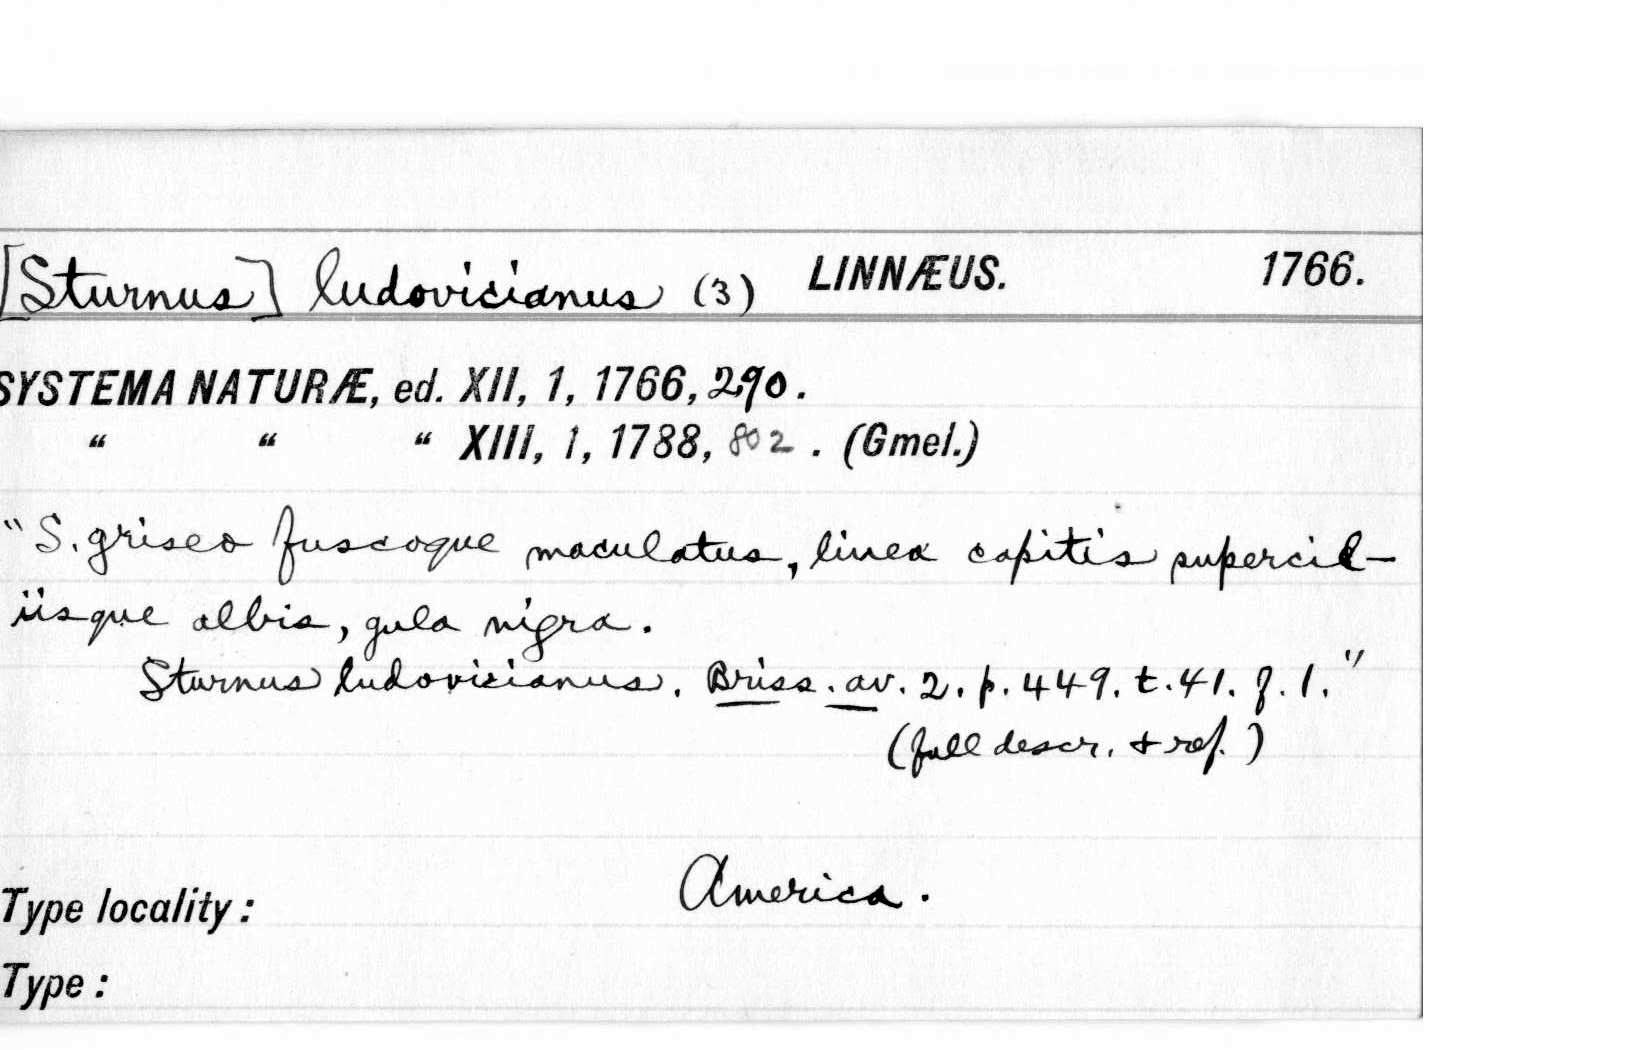 [Sturnus] ludovicianus (3) LINNÆUS. 1766.
SYSTEMA NATURÆ, ed. XII, 1, 1766, 290.
“ “ “ XIII, 1, 1788, 802. (Gmel.)
"S. griseo fuscoque maculatus, linea capitis supercil-
iisque albis, gula nigra.
Sturnus ludovicianus. Briss. av. 2. p. 449. t. 41. f. 1."
(full descr. & ref.)
America.
Type locality:
Type: